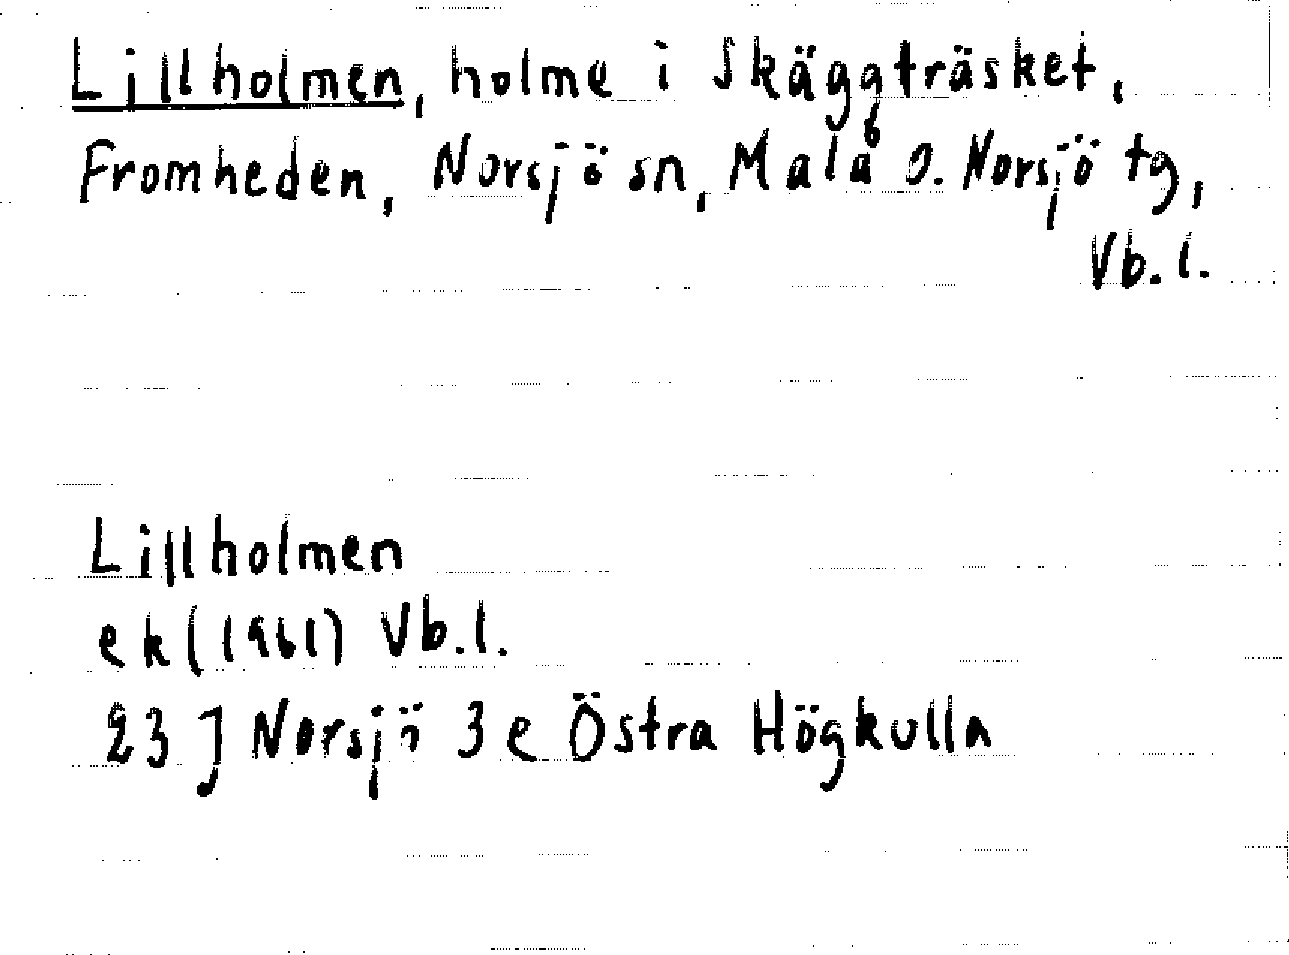 Lillholmen, holme i Skäggträsket,
Fromheden, Norsjö sn, Malå o. Norsjö tg,
Vb. l.
Lillholmen
ek (1961) Vb. l.
23 J Norsjö 3 e Östra Högkulla